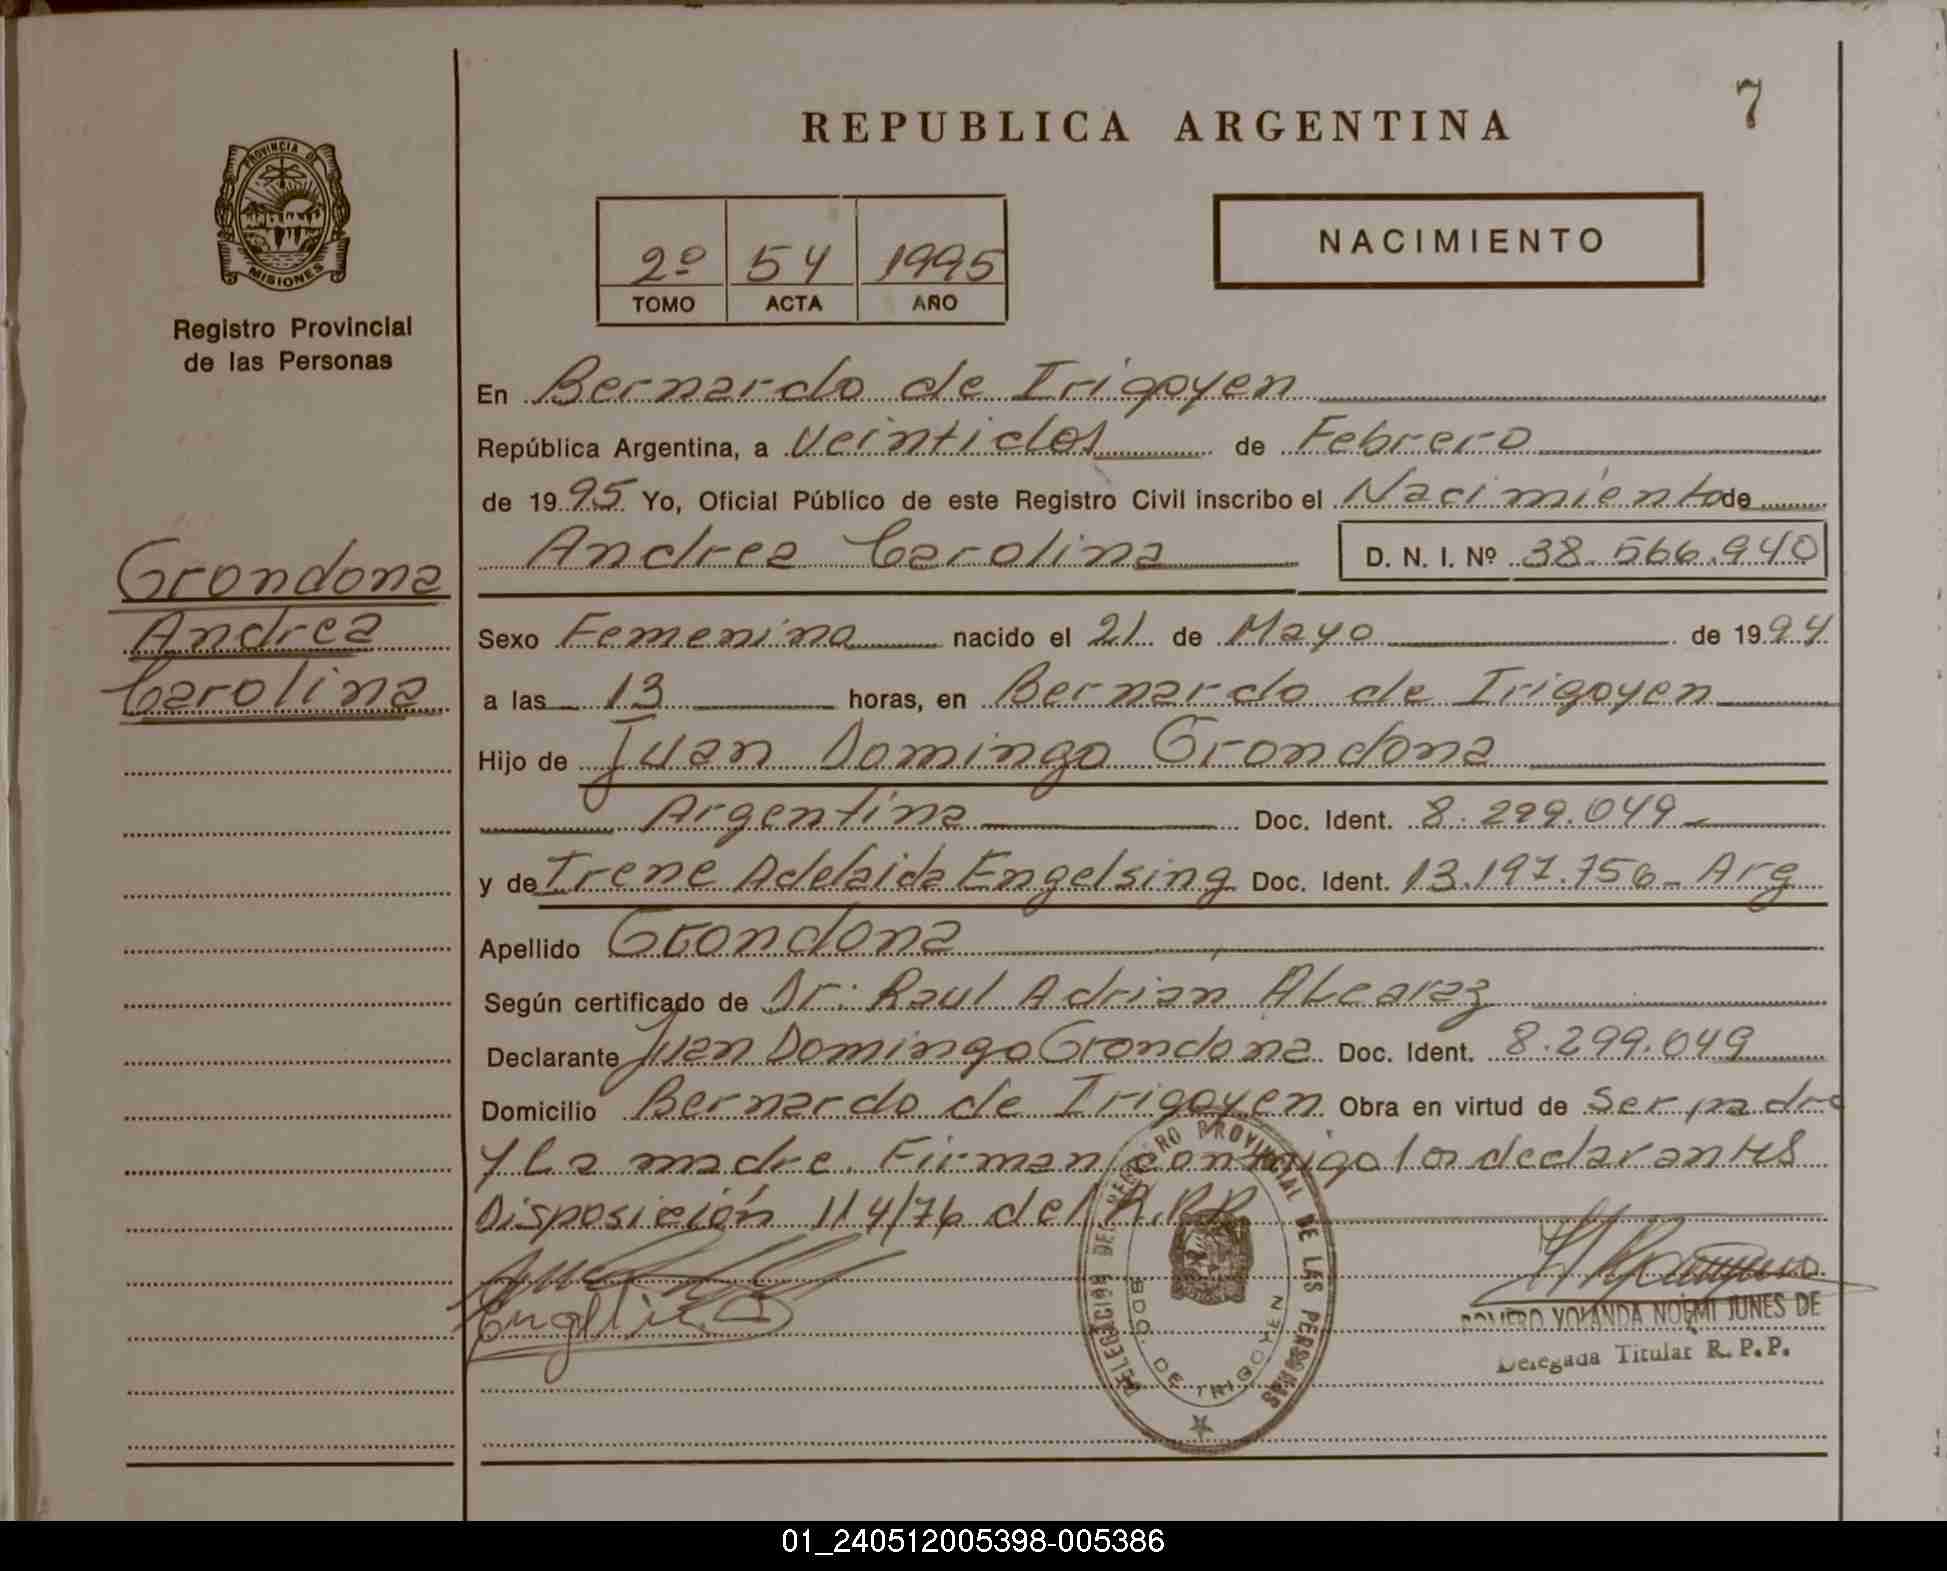 7
REPUBLICA ARGENTINA
PROVINCIA DE
MISIONES
Registro Provincial
de las Personas
2º 54 1995
TOMO ACTA AÑO
NACIMIENTO
En Bernardo de Irigoyen
República Argentina, a Veintidos de Febrero
de 1995 Yo, Oficial Público de este Registro Civil inscribo el Nacimiento de
Andrea Carolina D. N. I. Nº 38.566.940
Grondona
Andrea
Carolina
Sexo Femenina nacido el 21 de Mayo de 1994
a las 13 horas, en Bernardo de Irigoyen
Hijo de Juan Domingo Grondona
Argentina Doc. Ident. 8.299.049
y de Irene Adelaida Engelsing Doc. Ident. 13.197.756- Arg
Apellido Grondona
Según certificado de Dr: Raul Adrian Alcaraz
Declarante Juan Domingo Grondona Doc. Ident. 8.299.049
Domicilio Bernardo de Irigoyen Obra en virtud de ser padre
y La madre. Firman conmigo los declarantes
Disposición 114/76 del R.P.P.
DELEGACION DEL REGISTRO PROVINCIAL DE LAS PERSONAS
BDO. DE IRIGOYEN
ROMERO YOLANDA NOEMI JUNES DE
Delegada Titular R. P. P.
01_240512005398-005386